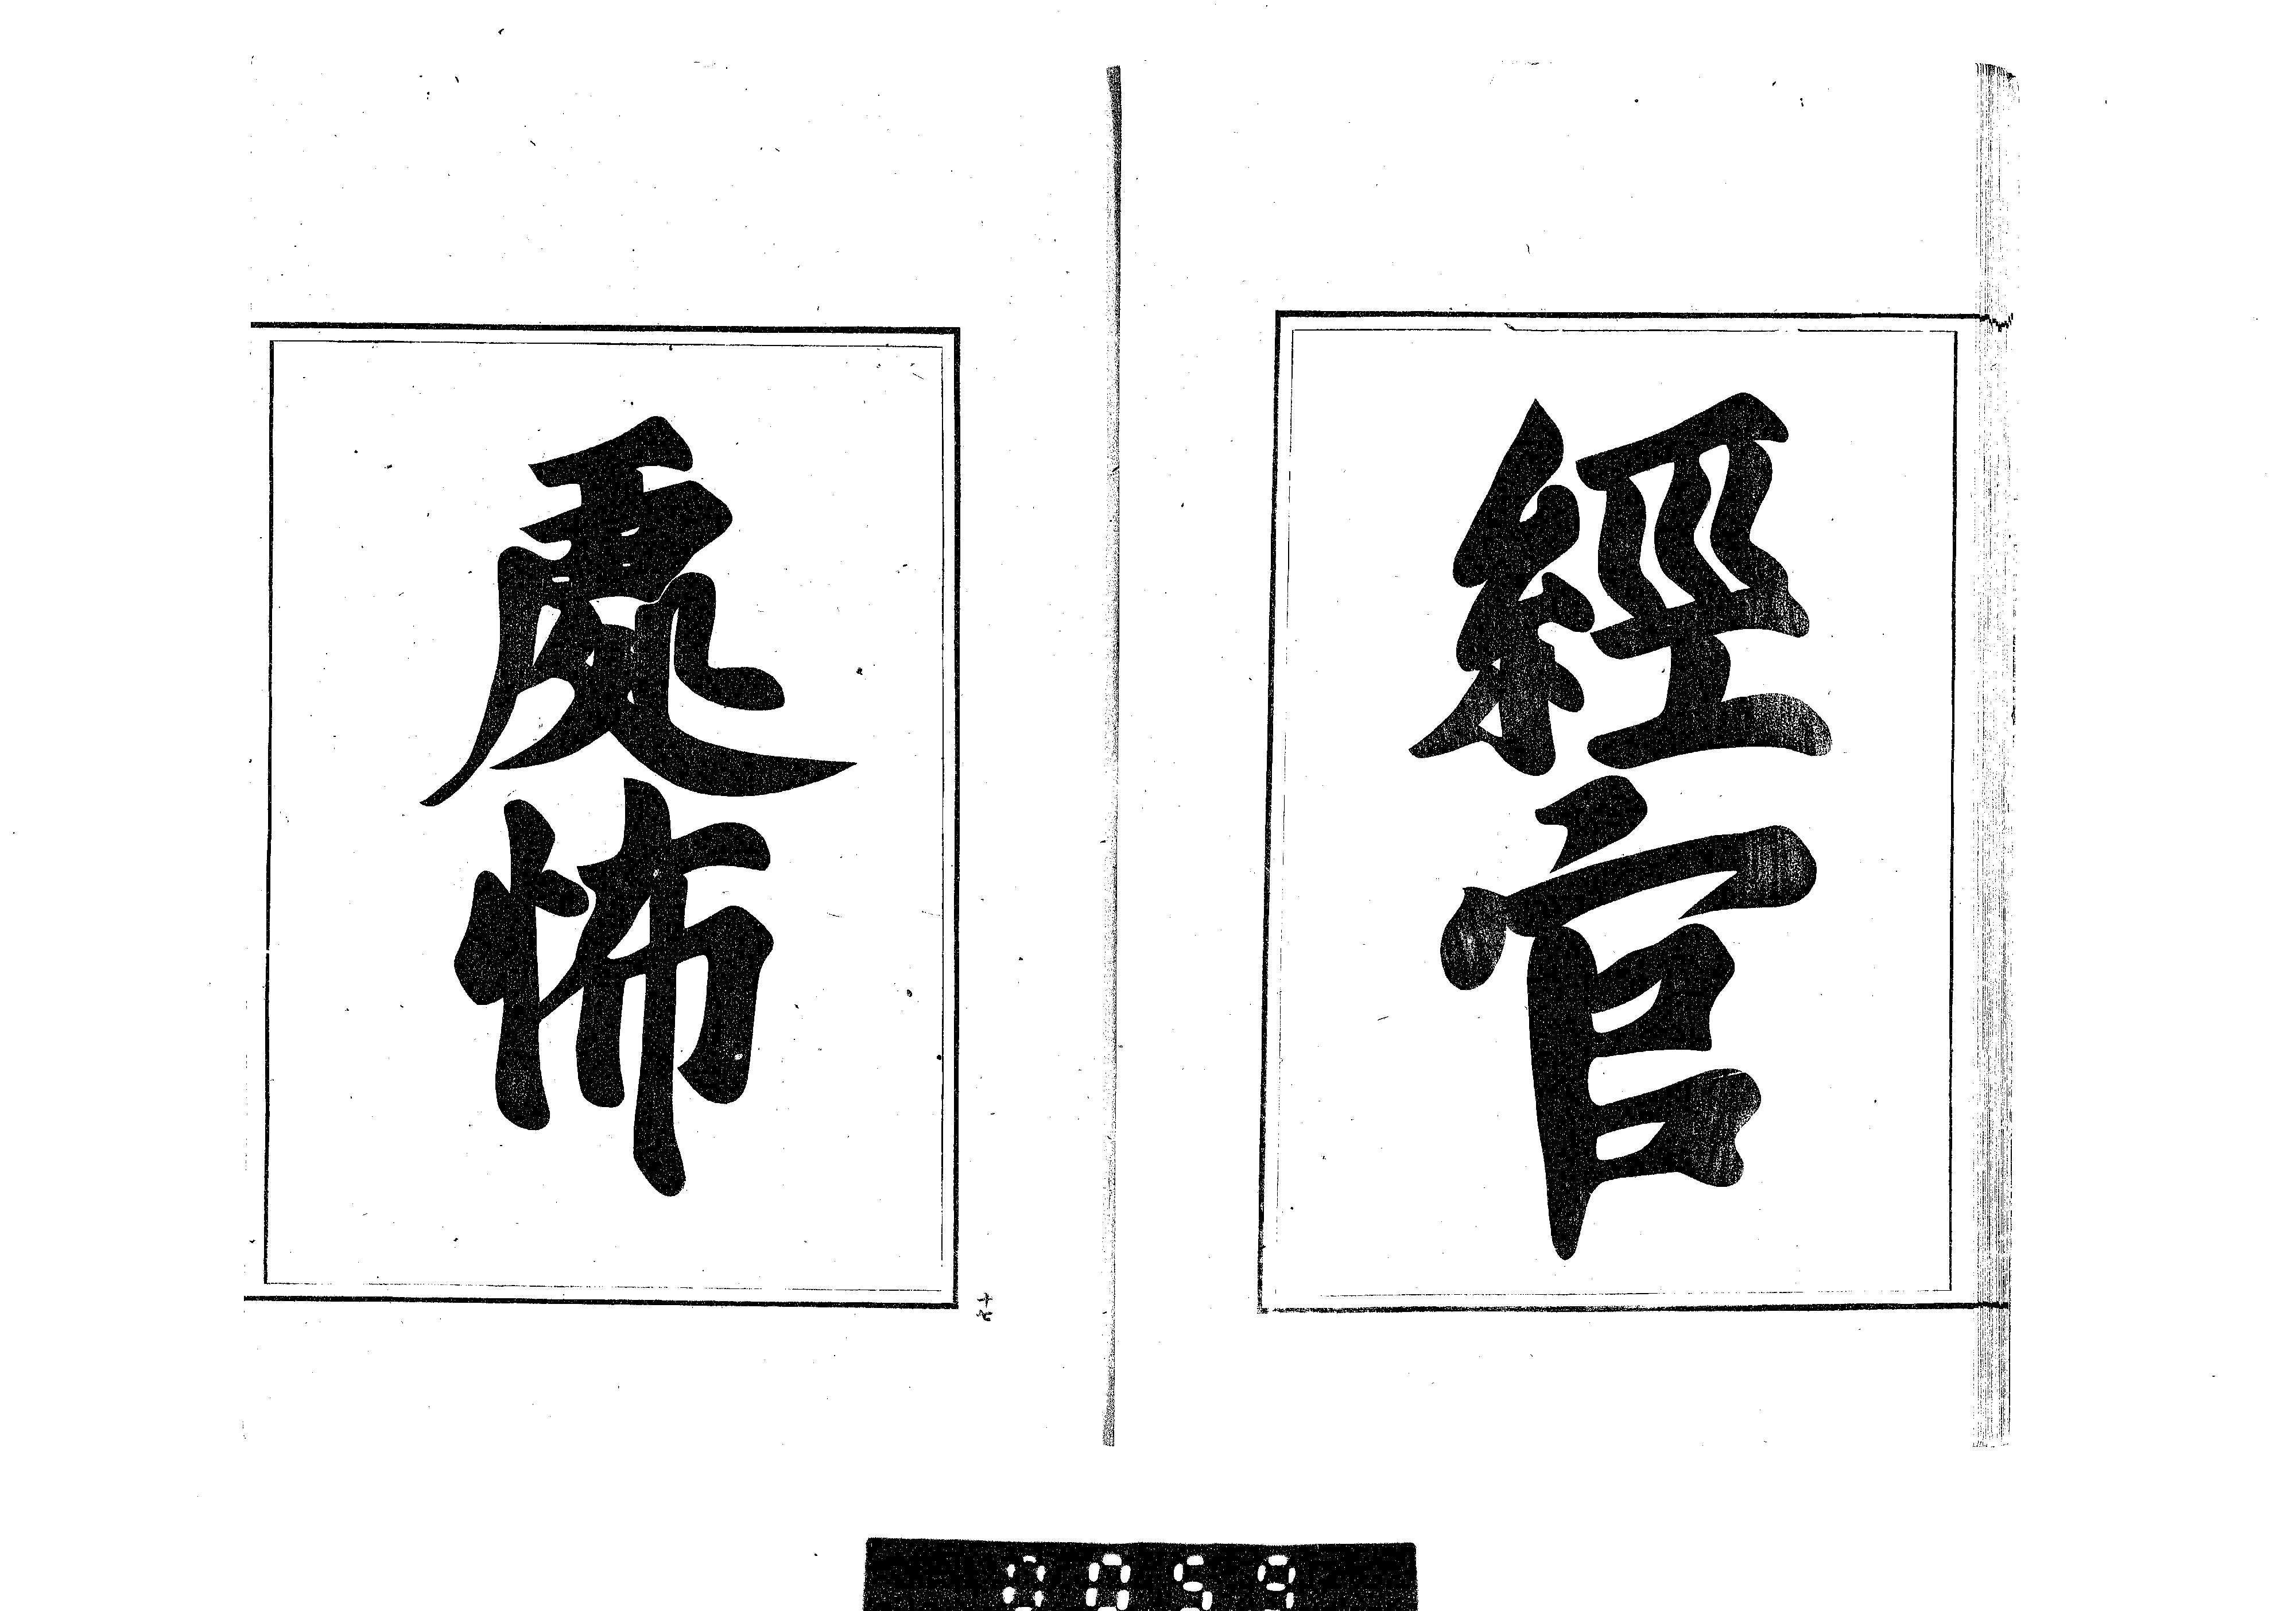 經官
處怖
0059